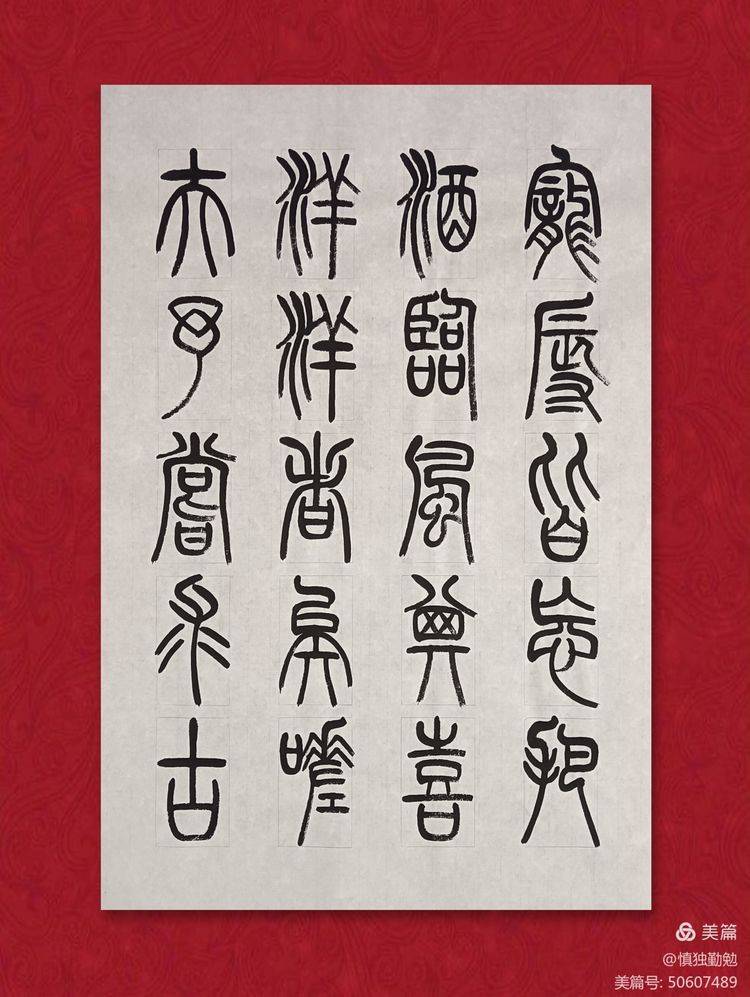 寵辱皆忘把
酒臨風其喜
洋洋者矣嗟
夫予嘗求古
美篇
@慎独勤勉
美篇号: 50607489